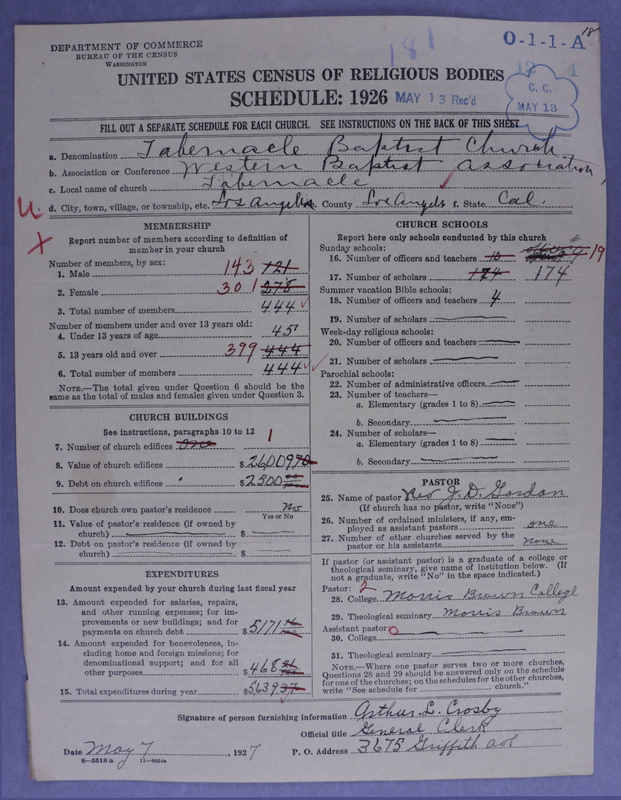 18
DEPARTMENT OF COMMERCE
BUREAU OF THE CENSUS
WASHINGTON
181
O-1-1-A
UNITED STATES CENSUS OF RELIGIOUS BODIES
SCHEDULE: 1926
MAY 13 Rec'd
C. C.
MAY 13
FILL OUT A SEPARATE SCHEDULE FOR EACH CHURCH. SEE INSTRUCTIONS ON THE BACK OF THIS SHEET
a. Denomination Tabernacle Baptist Church
b. Association or Conference Western Baptist Association
c. Local name of church Tabernacle
U. d. City, town, village, or township, etc. Los Angeles e. County Los Angeles f. State Cal.
X
MEMBERSHIP
Report number of members according to definition of
member in your church
Number of members, by sex:
1. Male 143 121
2. Female 301 278
3. Total number of members 444
Number of members under and over 13 years old:
4. Under 13 years of age 45
5. 13 years old and over 399 444
6. Total number of members 444
NOTE.—The total given under Question 6 should be the
same as the total of males and females given under Question 3.
CHURCH BUILDINGS
See instructions, paragraphs 10 to 12
7. Number of church edifices One 1
8. Value of church edifices $26009.70
9. Debt on church edifices $2500
10. Does church own pastor's residence No
Yes or No
11. Value of pastor's residence (if owned by
church) $
12. Debt on pastor's residence (if owned by
church) $
EXPENDITURES
Amount expended by your church during last fiscal year
13. Amount expended for salaries, repairs,
and other running expenses; for im-
provements or new buildings; and for
payments on church debt $5171
14. Amount expended for benevolences, in-
cluding home and foreign missions; for
denominational support; and for all
other purposes $468
15. Total expenditures during year $5639
CHURCH SCHOOLS
Report here only schools conducted by this church
Sunday schools:
16. Number of officers and teachers 10 19
17. Number of scholars 174 174
Summer vacation Bible schools:
18. Number of officers and teachers 4
19. Number of scholars
Week-day religious schools:
20. Number of officers and teachers
21. Number of scholars
Parochial schools:
22. Number of administrative officers
23. Number of teachers—
a. Elementary (grades 1 to 8)
b. Secondary
24. Number of scholars—
a. Elementary (grades 1 to 8)
b. Secondary
PASTOR
25. Name of pastor Rev J. D. Gordon
(If church has no pastor, write "None")
26. Number of ordained ministers, if any, em-
ployed as assistant pastors one
27. Number of other churches served by the
pastor or his assistants none
If pastor (or assistant pastor) is a graduate of a college or
theological seminary, give name of institution below. (If
not a graduate, write "No" in the space indicated.)
Pastor: 2
28. College Morris Brown College
29. Theological seminary Morris Brown
Assistant pastor: 0
30. College
31. Theological seminary
NOTE.—Where one pastor serves two or more churches,
Questions 28 and 29 should be answered only on the schedule
for one of the churches; on the schedules for the other churches,
write "See schedule for church."
Signature of person furnishing information Arthur L. Crosby
Official title General Clerk
Date May 7, 1927 P. O. Address 3675 Griffith ave
8—5518 a